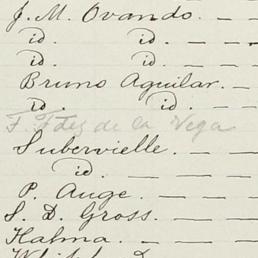 J. M. Ovando. — —
id. id. — — —
id. id. — — —
Bruno Aguilar. — —
id. id. — — —
F. Fdez de la Vega
Subervielle. — — —
id. — — — —
P. Auge. — — — —
S. D. Gross. — — —
Halma. — — — —